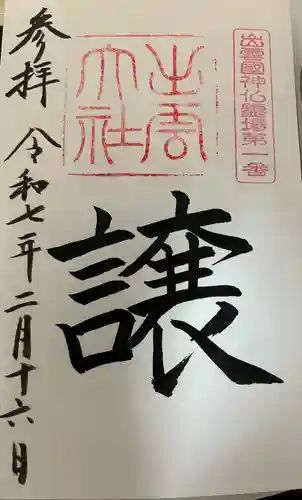 出雲國神仏霊場第一番
出雲
大社
譲
参拝
令和七年二月十六日